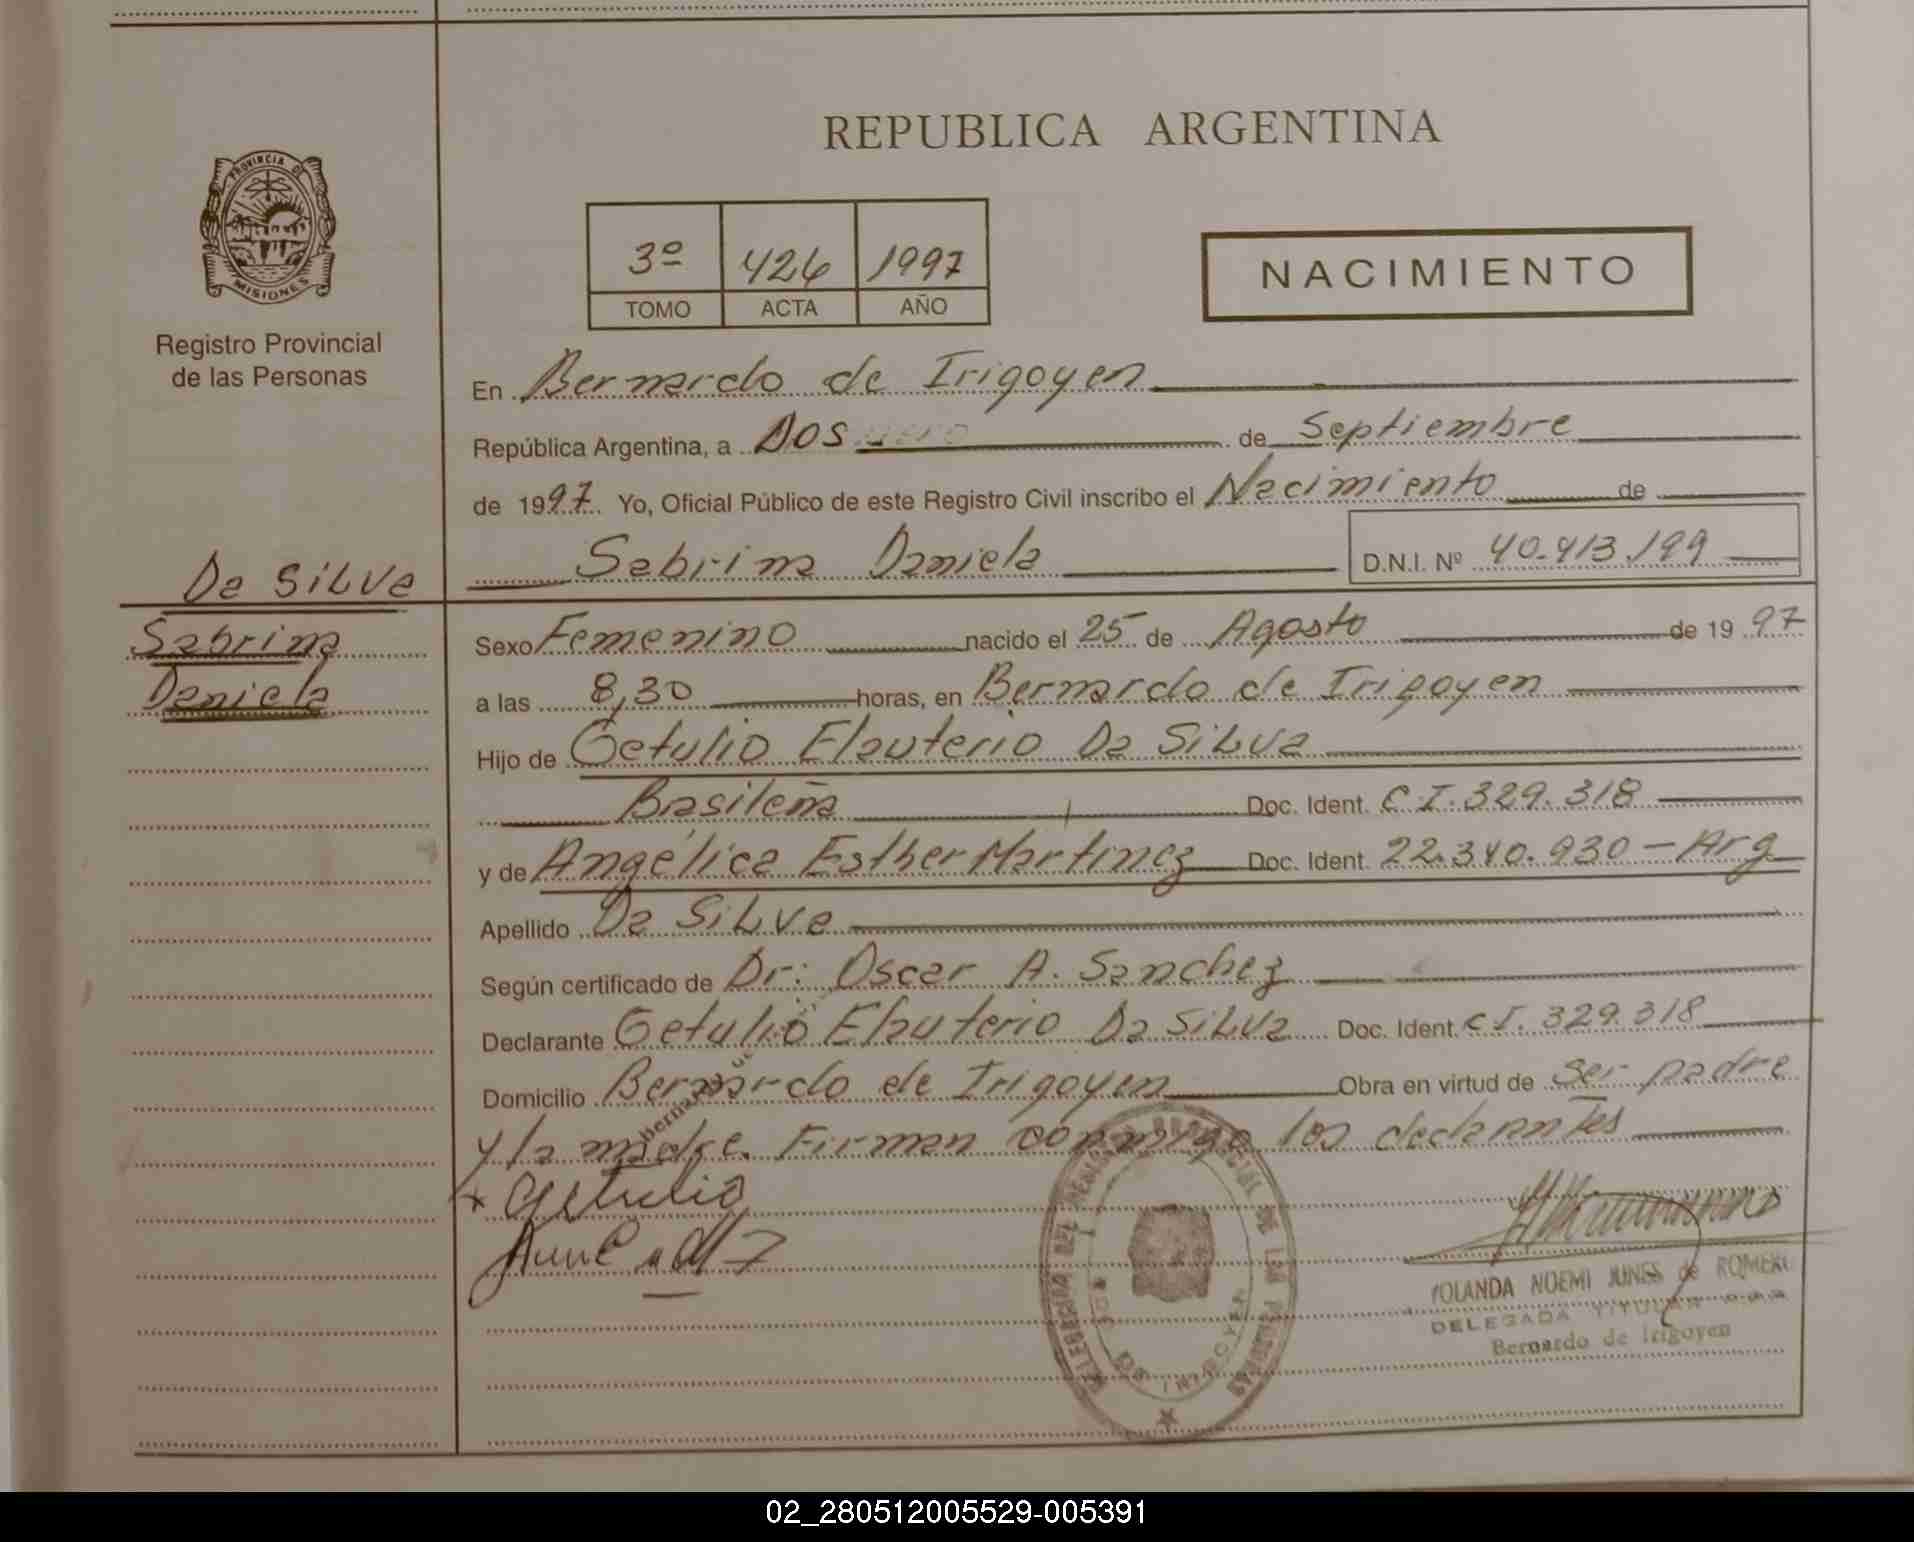 REPUBLICA ARGENTINA
PROVINCIA DE
MISIONES
Registro Provincial
de las Personas
3º 426 1997
TOMO ACTA AÑO
NACIMIENTO
En Bernardo de Irigoyen
República Argentina, a Dos de Septiembre
de 1997. Yo, Oficial Público de este Registro Civil inscribo el Nacimiento de
Sabrina Daniela D.N.I. Nº 40.413.199
Da SiLva
Sabrina
Daniela
Sexo Femenino nacido el 25 de Agosto de 1997
a las 8,30 horas, en Bernardo de Irigoyen
Hijo de Getulio Elauterio Da SiLva
Brasileña Doc. Ident. C.I. 329.318
y de Angélica Esther Martinez Doc. Ident. 22.340.930 - Arg
Apellido Da SiLva
Según certificado de Dr: Oscar A. Sanchez
Declarante Getulio Elauterio Da SiLva Doc. Ident. C.I. 329.318
Domicilio Bernardo de Irigoyen Obra en virtud de Ser padre
y la madre. Firman conmigo los declarantes
Getulio
DELEGACIA DEL REGISTRO PROVINCIAL DE LAS PERSONAS
DE IRIGOYEN
YOLANDA NOEMI JUNES de ROMERO
DELEGADA TITULAR
Bernardo de Irigoyen
02_280512005529-005391